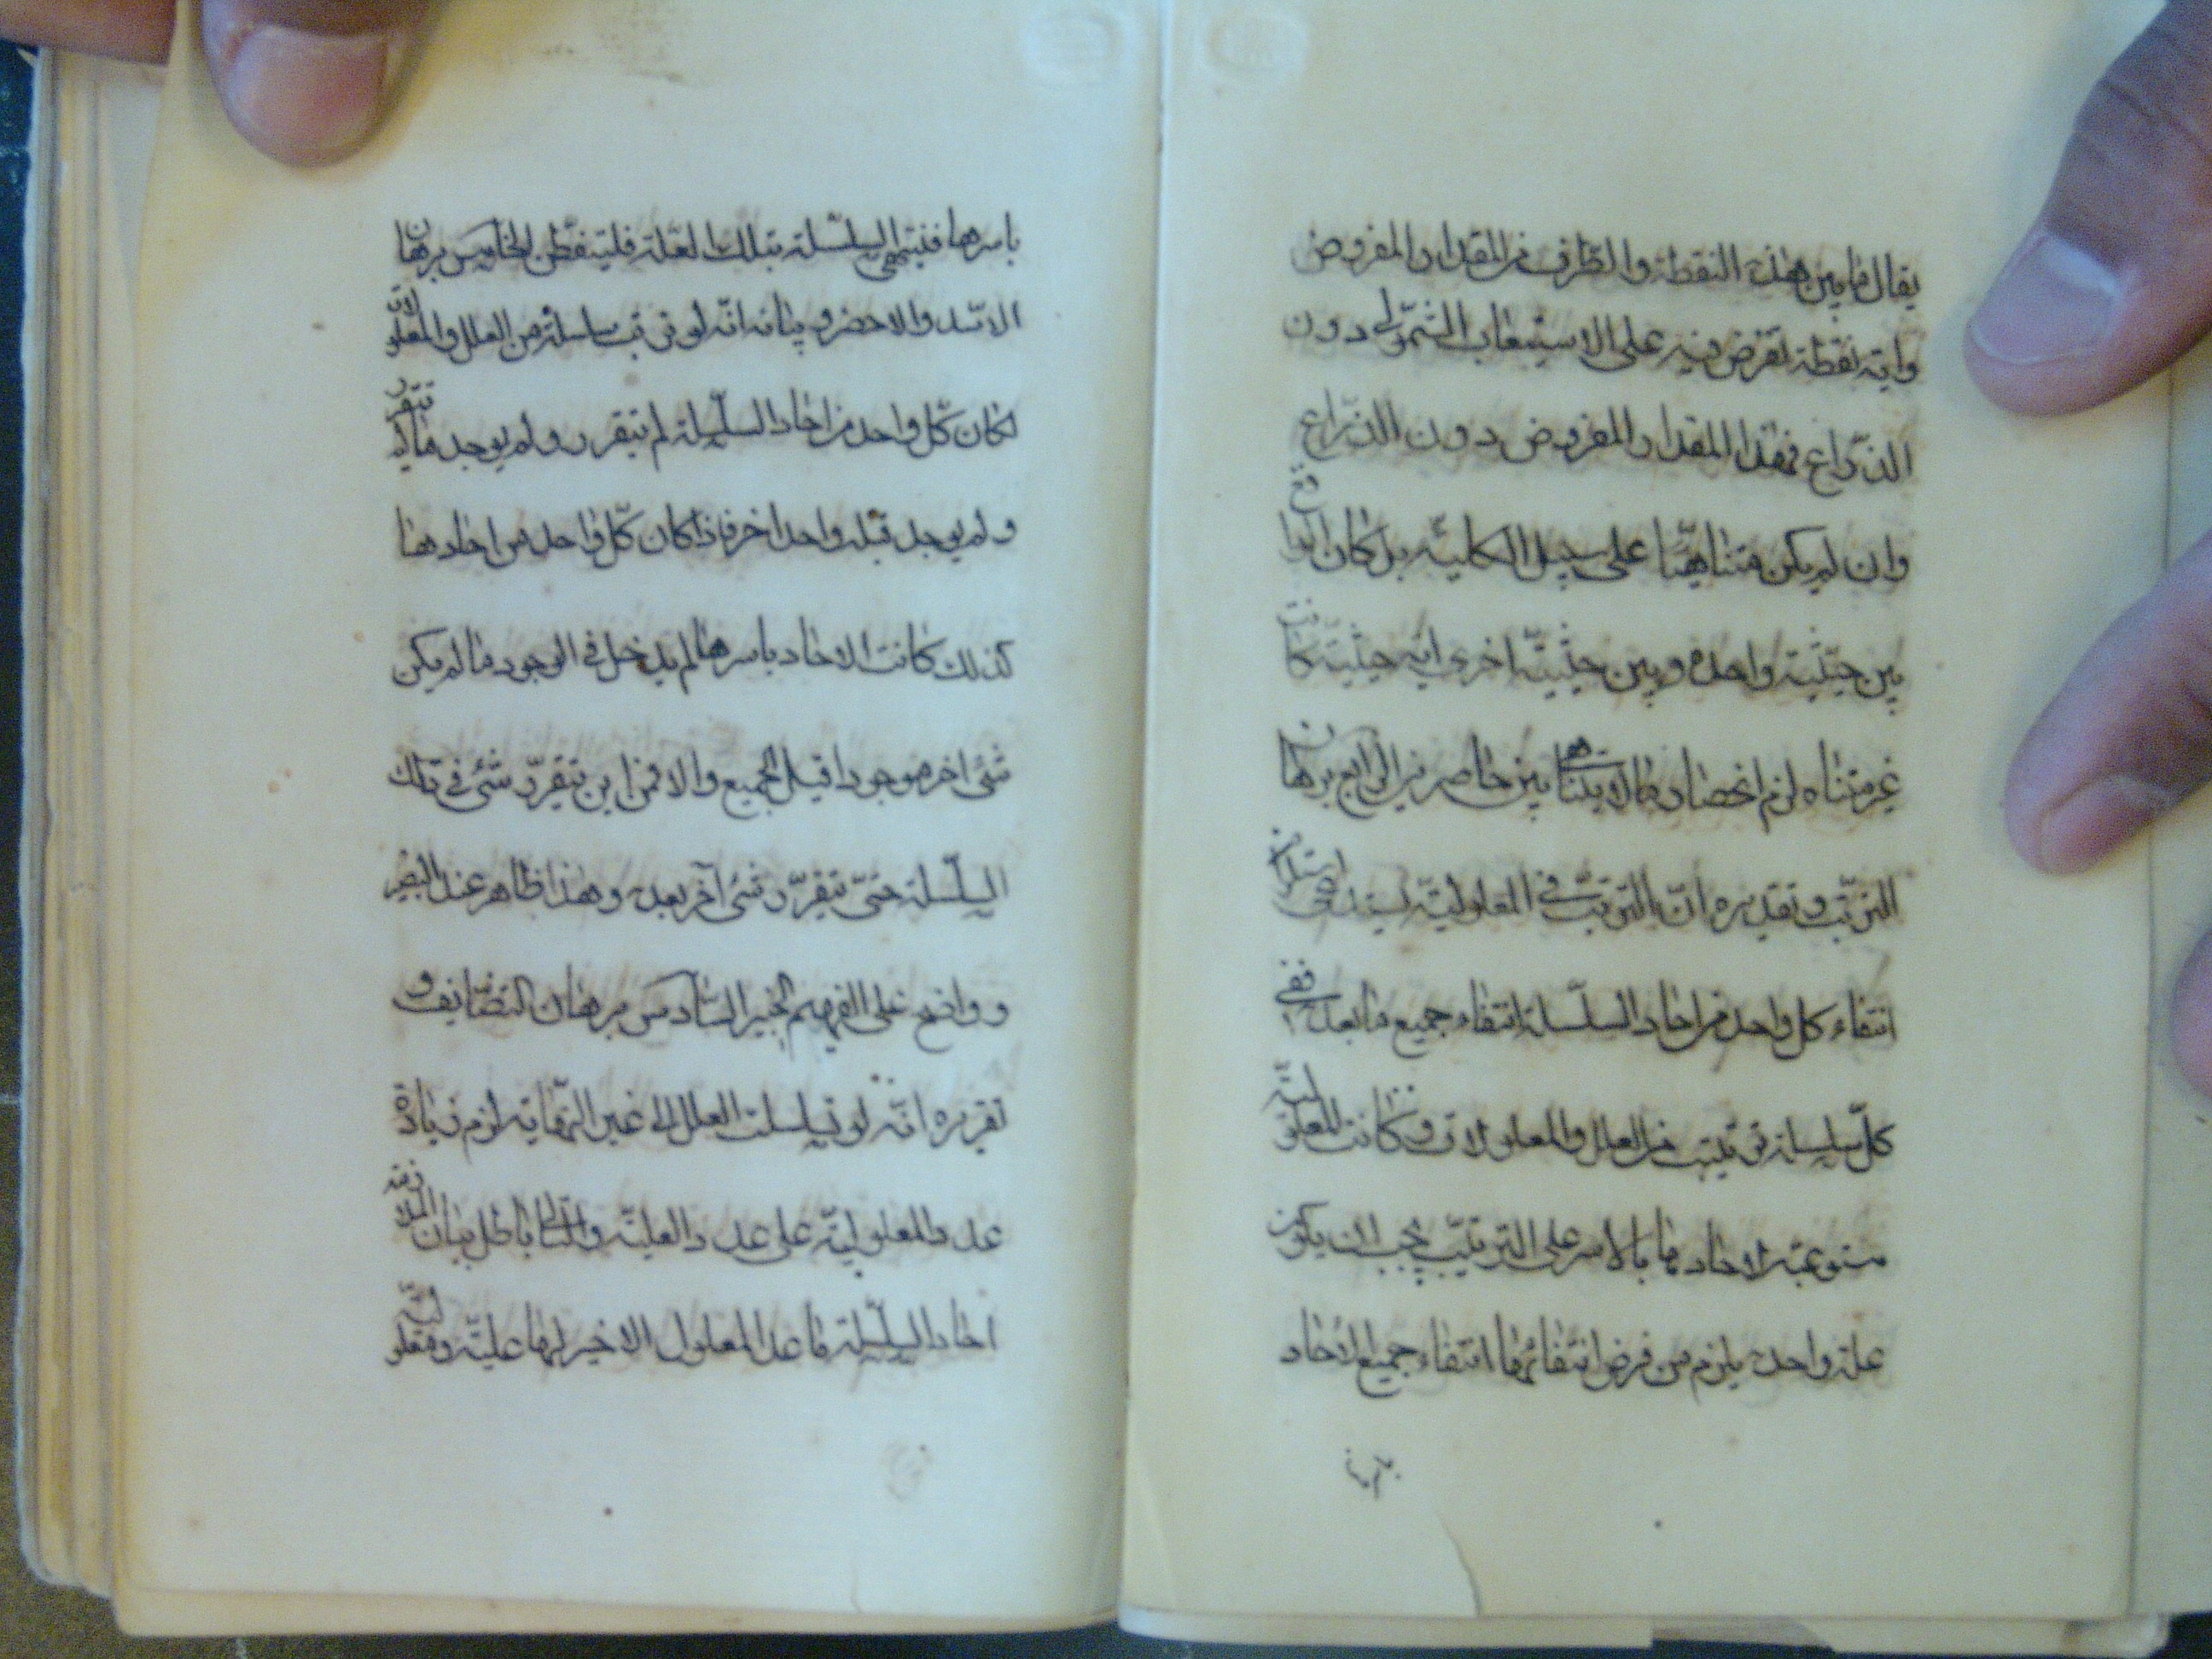 يقال ما بين هذه النقطة والطرف من المقدار المفروض
واية نقطة تفرض فيه على الاستيعاب الشمولى دون
الذراع فهذا المقدار المفروض دون الذراع
وان لم يكن متناهيا على سبيل الكلية بل كان الواقع
بين حيثية واحدة وبين حيثية اخرى اية حيثية كانت
غير متناه لزم انحصار ما لا يتناهى بين حاصرين الرابع برهان
الترتب وتقديره ان الترتب فى المعلولية يستدعى
انتفاء كل واحد من احاد السلسلة انتفاء جميع ما بعده ففى
كل سلسلة ترتبت من العلل والمعلولات وكانت المعلولية
مستوعبة لاحادها بالاسر على الترتيب يجب ان يكون
علة واحدة يلزم من فرض انتفائها انتفاء جميع الاحاد
باسرها
باسرها فينتهى السلسلة بتلك العلة فليتفطن الخامس برهان
الاسد والاخصر وبيانه انه لو ترتب سلسلة من العلل والمعلولات
لكان كل واحد من احاد السلسلة لم يتقرر ولم يوجد ما لم يتقرر
ولم يوجد قبله واحد اخر فاذا كان كل واحد من احادها
كذلك كانت الاحاد باسرها لم يدخل فى الوجود ما لم يكن
شئ اخر موجودا قبل الجميع والا فمن اين يتقرر شئ فى تلك
السلسلة حتى يتقرر شئ آخر بعده وهذا ظاهر عند البصير
وواضح على الفهيم الخبير السادس برهان التضايف و
تقريره انه لو تسلسلت العلل الى غير النهاية لزم زيادة
عدد المعلولية على عدد العلية والتالى باطل بيان الملازمة
احاد السلسلة ما عدا المعلول الاخير لها علية ومعلولية